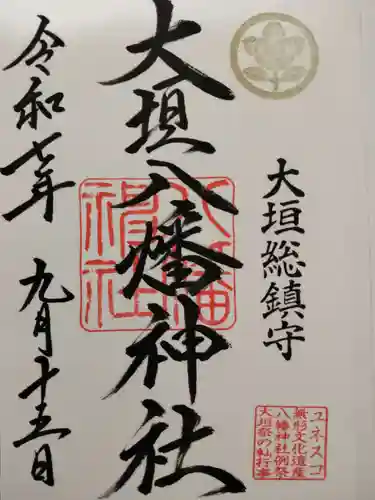 大垣総鎮守
大垣八幡神社
令和七年 九月十五日
八幡神社
ユネスコ
無形文化遺産
八幡神社例祭
大垣祭の軕行事